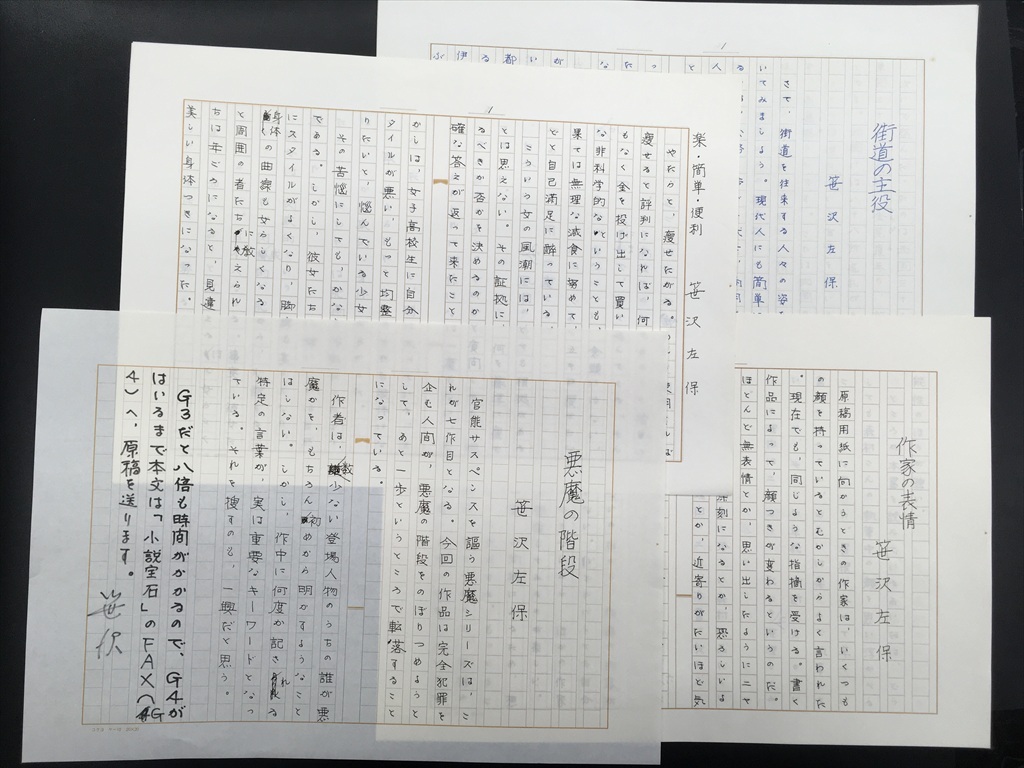 街道の主役
笹沢左保
さて、街道を往来する人々の姿
いてみましょう。現代人にも簡単
楽・簡単・便利
笹沢左保
やたらと、痩せたがる。
痩せると評判になれば、何
もなく金を投げ出して買い
な非科学的なということも、
果ては無理な減食に努めて、
とと自己満足に酔っている。
こういう女の風潮には、
とは思えない。その証拠に、
るべきか否かを決めるのか
確な答えが返って来たこと
かしは、女子高校生に自分
タイルが悪い、もっと均整
りたいと、悩んでいる少女
その苦悩にしても、かな
である。しかし、彼女たち
にスタイルがよくなり、脚
身体の曲線も女らしくなる
と周囲の者たちに教えられ
ちは年ごろになると、見違
美しい身体つきになった。
作家の表情
笹沢左保
原稿用紙に向かうときの作家は、いくつも
の顔を持っているとむかしからよく言われた
。現在でも、同じような指摘を受ける。書く
作品によって、顔つきが変わるというのだ。
ほとんど無表情とか、思い出したようにニヤ
深刻になるとか、恐ろしいな
ことか、近寄りがたいほど気
悪魔の階段
笹沢左保
官能サスペンスを謳う悪魔シリーズは、こ
れが七作目となる。今回の作品は完全犯罪を
企む人間が、悪魔の階段をのぼりつめようと
して、あと一歩というところで転落すること
になっている。
作者は、数少ない登場人物のうちの誰が悪
魔かを、もちろん初めから明かすようなこと
はしない。しかし、作中に何度か記される
特定の言葉が、実は重要なキーワードとなっ
ている。それを捜すのも、一興だと思う。
G3だと八倍も時間がかかるので、G4が
はいるまで本文は「小説宝石」のFAX(G
4)へ、原稿を送ります。
笹沢